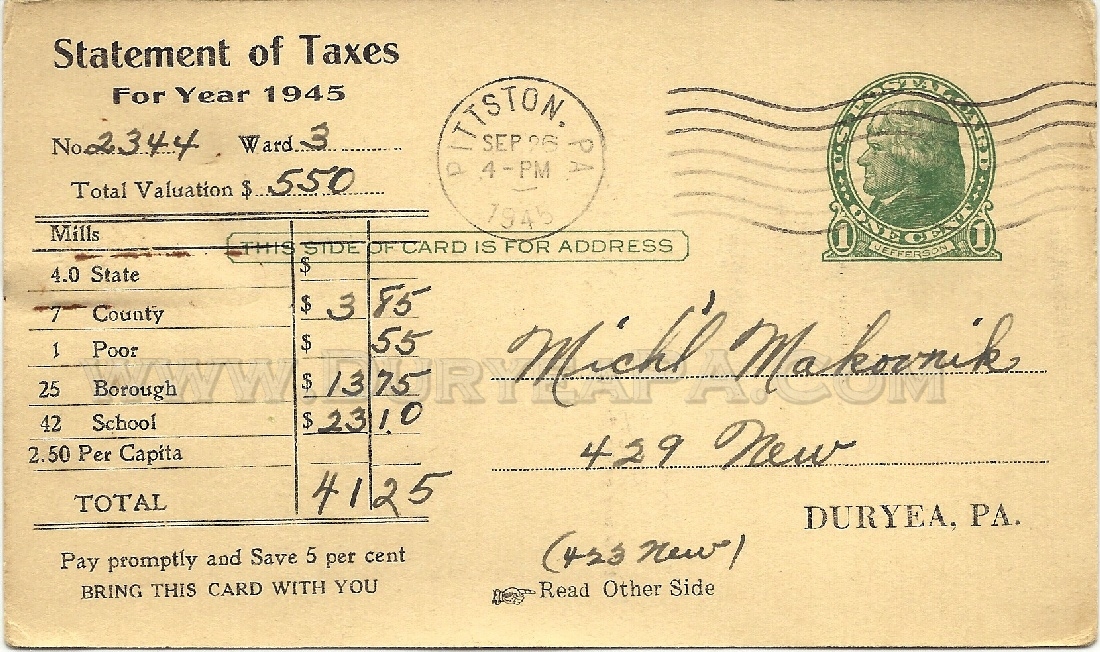 Statement of Taxes
For Year 1945
No. 2344 Ward 3
Total Valuation $ 550
Mills
4.0 State $
7 County $ 3 85
1 Poor $ 55
25 Borough $ 13 75
42 School $ 23 10
2.50 Per Capita
TOTAL 41 25
Pay promptly and Save 5 per cent
BRING THIS CARD WITH YOU
PITTSTON, PA
SEP 26
4-PM
1945
THIS SIDE OF CARD IS FOR ADDRESS
U.S. POSTAL CARD
ONE CENT
1 JEFFERSON 1
Mich'l Makovnik
429 New
DURYEA, PA.
(423 New)
Read Other Side
WWW.DURYEAPA.COM